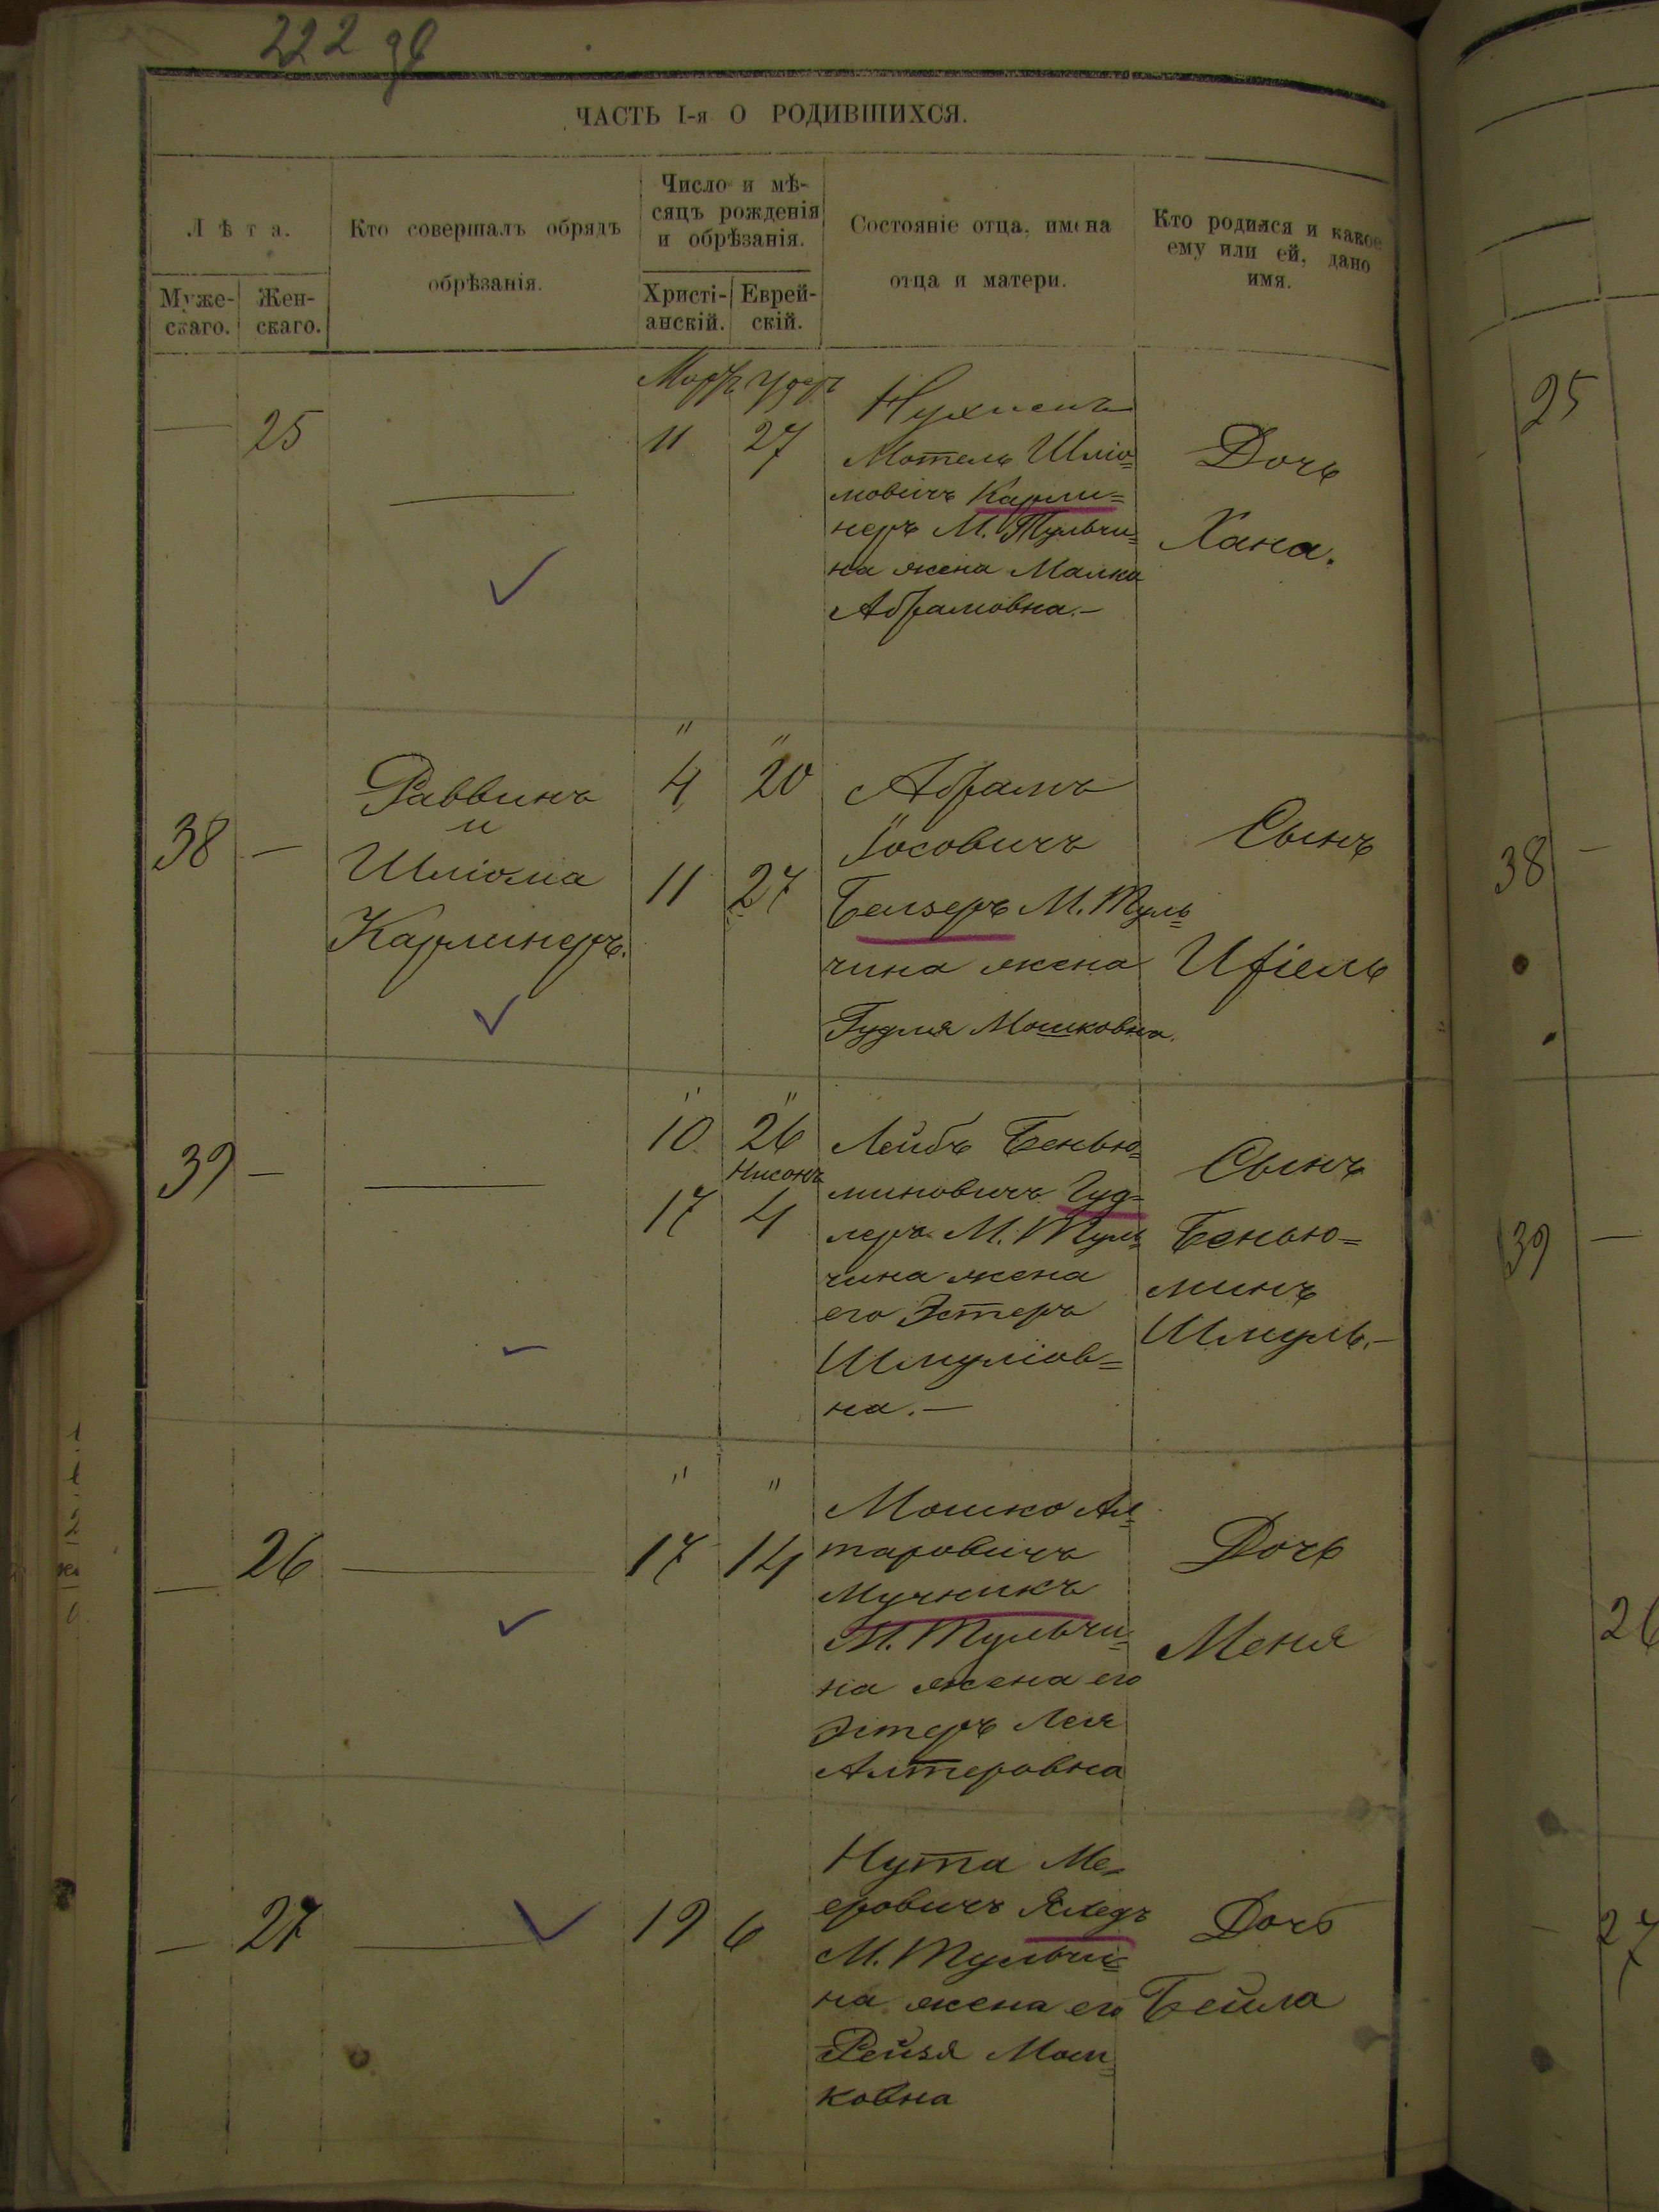 222 об
ЧАСТЬ I-я О РОДИВШИХСЯ.
Лѣта.
Муже-
скаго.
Жен-
скаго.
Кто совершалъ обрядъ
обрѣзанія.
Число и мѣ-
сяцъ рожденія
и обрѣзанія.
Христі-
анскій.
Еврей-
скій.
Состояніе отца, имена
отца и матери.
Кто родился и какое
ему или ей, дано
имя.
Мартъ Удеръ
— 25
—
11 27
Мотель Шліо=
мовичъ Карли=
неръ М. Тульчи=
на жена Малка
Абрамовна.—
Дочь
Хана.
38 —
Раввинъ
и
Шліома
Карлинеръ.
" "
4 20
11 27
Абрамъ
Іосовичъ
Белзеръ М. Туль=
чина жена
Гудля Мошковна.
Сынъ
Ифіель
39 —
—
" "
10 26
Нисонъ
17 4
Лейбъ Бенью=
миновичъ Гуд=
леръ М. Туль=
чина жена
его Эстеръ
Шмуліов=
на.—
Сынъ
Бенью=
минъ
Шмуль.—
— 26
—
" "
17 14
Мошко Ал=
таровичъ
Мучникъ
М. Тульчи=
на жена его
Эстеръ Лея
Алтеровна
Дочь
Меня
— 27
—
19 6
Нута Ме=
еровичъ
М. Тульчи=
на жена его
Рейзя Мош=
ковна
Дочь
Бейла
25
38 —
39 —
26
27